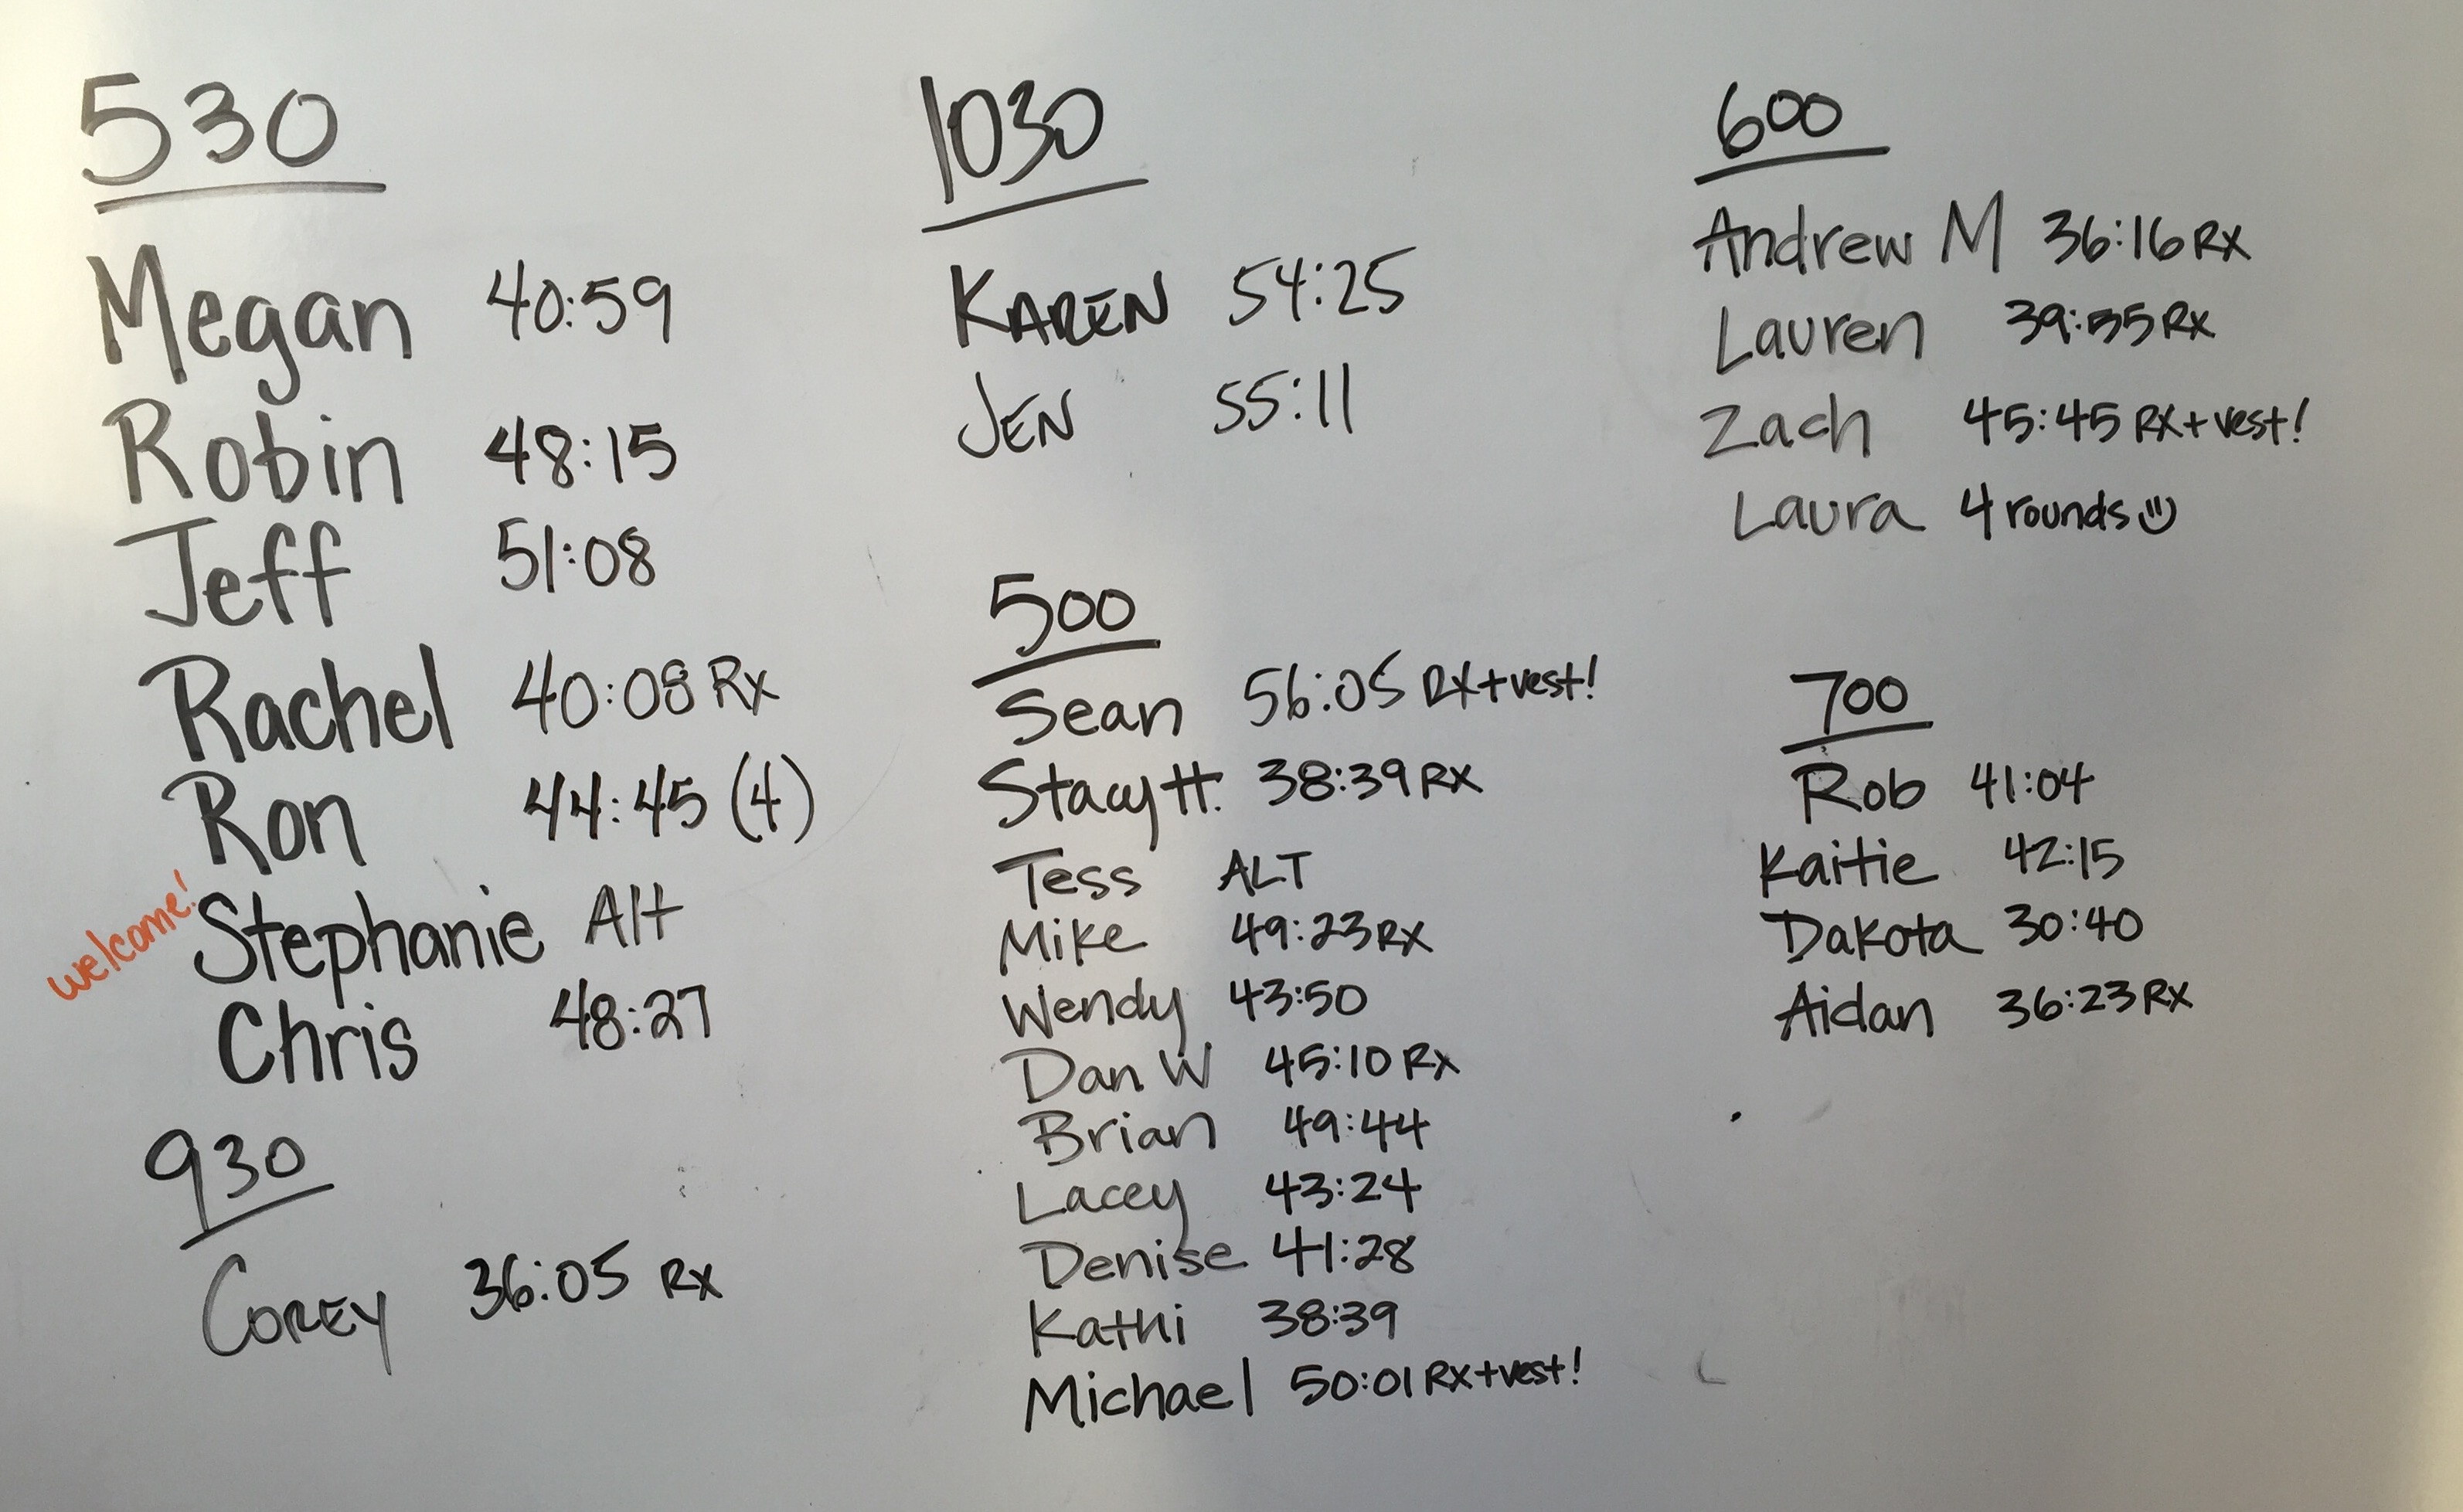 530
Megan 40:59
Robin 48:15
Jeff 51:08
Rachel 40:08 Rx
Ron 44:45 (4)
welcome! Stephanie Alt
Chris 48:27
930
COREY 36:05 RX
1030
KAREN 54:25
JEN 55:11
500
Sean 56:05 RX+vest!
Stacy H. 38:39 RX
Tess ALT
Mike 49:23 RX
Wendy 43:50
Dan W 45:10 Rx
Brian 49:44
Lacey 43:24
Denise 41:28
Kathi 38:39
Michael 50:01 RX+vest!
600
Andrew M 36:16 RX
Lauren 39:55 RX
Zach 45:45 RX+vest!
Laura 4 rounds
700
Rob 41:04
Kaitie 42:15
Dakota 30:40
Aidan 36:23 RX